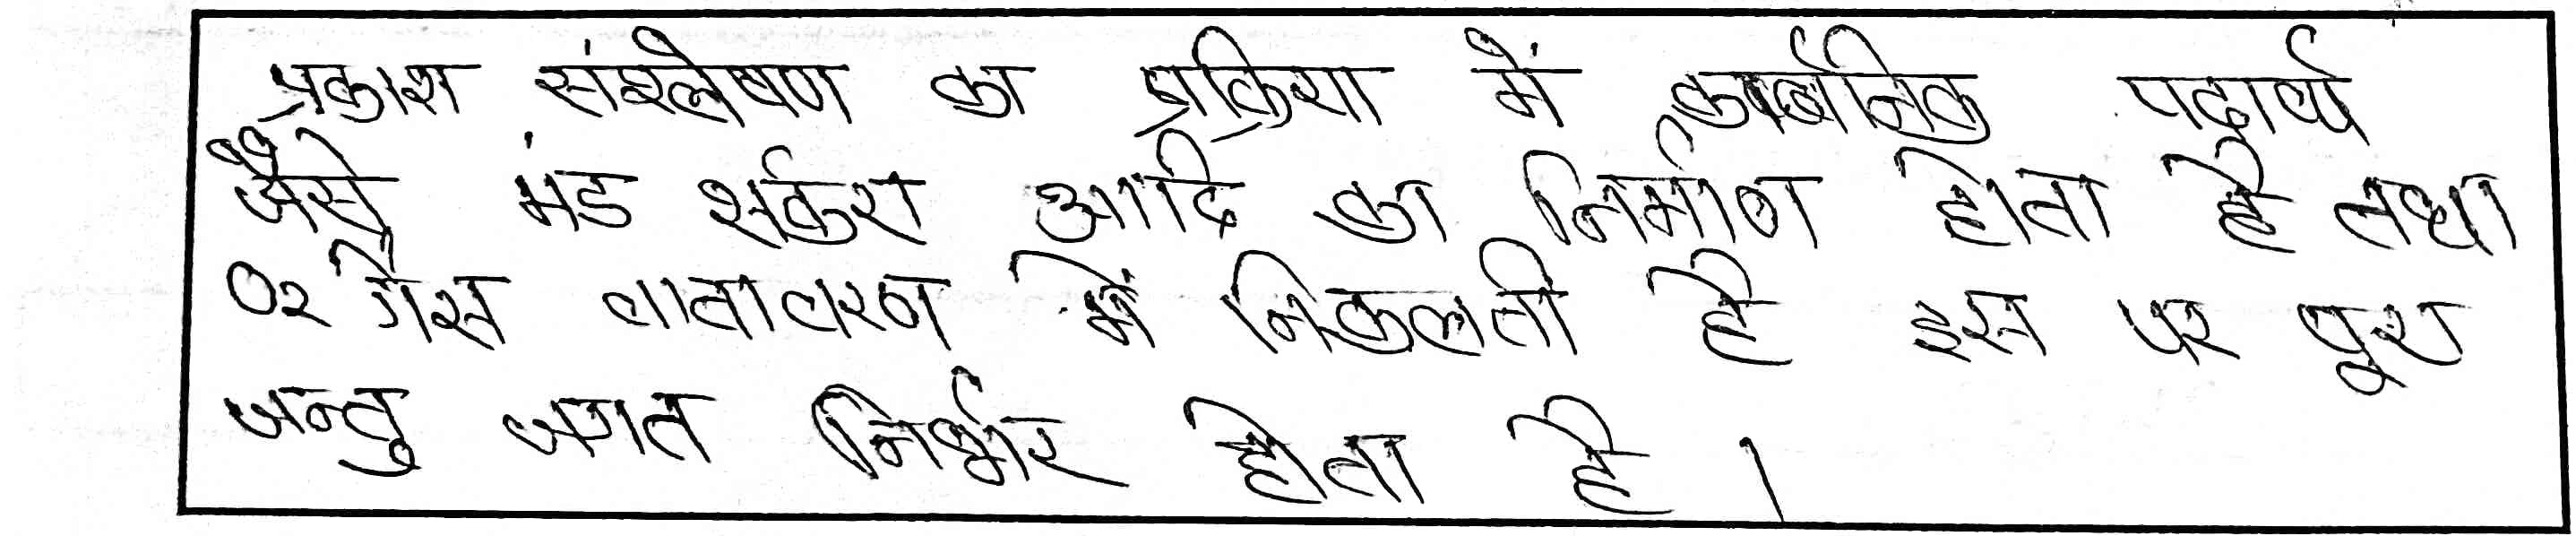 प्रकाश संश्लेषण का प्रक्रिया में कार्बनिक पदार्थ
जैसे मंड शर्करा आदि का निर्माण होता है तथा
O2 गैस वातावरण में निकलती है इस पर पूरा
जन्तु जगत निर्भर होता है ।